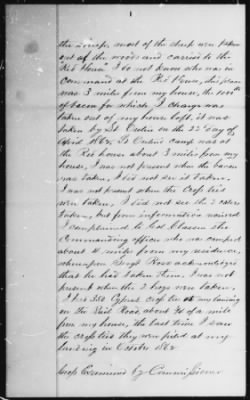 the troops, most of the sheep were taken
out of the woods and carried to the
"Red House" I do not know who was in
command at the Red House, this place
was 3 miles from my house, the 100 lbs
of bacon for which I charge was
taken out of my house loft. it was
taken by Lt on the 22nd day of
April 1862. Lt camp was at
the Red house about 3 miles from my
house, I was not present when the bacon
was taken, I did not see it taken.
I was not present when the Cross ties
were taken, I did not see the 2
taken, but from information received
I complained to Col. the
Commanding officer who was camped
about 4 miles from my residence,
whereupon Serg't Rose acknowledged
that he had taken them. I was not
present when the 2 hogs were taken,
I had 350 Cyprus cross ties at my landing
on the Rail Road, about 3/4 of a mile
from my house, the last time I saw
the cross ties they were piled at my
landing in October 1862
Cross Examined by Commissioner